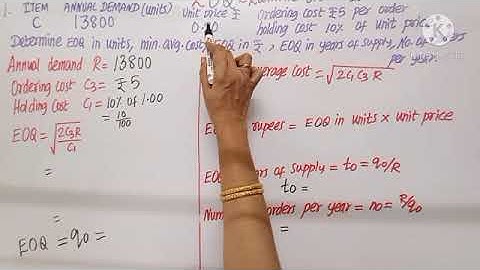 1. ITEM ANNUAL DEMAND (units) unit price ₹ ordering cost ₹5 per order
C 13800 holding cost 10% of unit price
Determine EOQ in units, min. avg. cost, EOQ in ₹, EOQ in years of supply, No. of orders per year
Annual demand R = 13800
Ordering cost C3 = ₹ 5
Holding Cost C1 = 10% of 1.00
= 10/100
EOQ = √2C3R/C1
=
=
EOQ = q0 =
average cost = √2C1C3R
rupees = EOQ in units x unit price
of supply = t0 = q0/R
t0 =
orders per year = n0 = R/q0
=
KINEMASTER